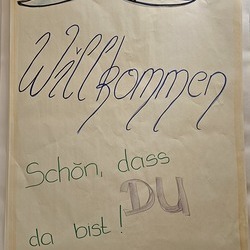 Willkommen
Schön, dass
DU
da bist!